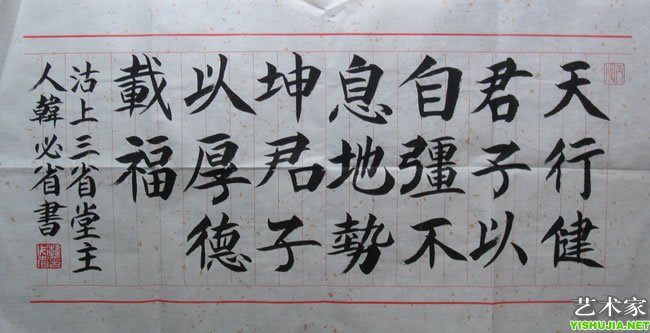 天行健
君子以
自彊不
息地勢
坤君子
以厚德
載福
沽上三省堂主
人韓必省書
艺术家
YISHUJIA.NET